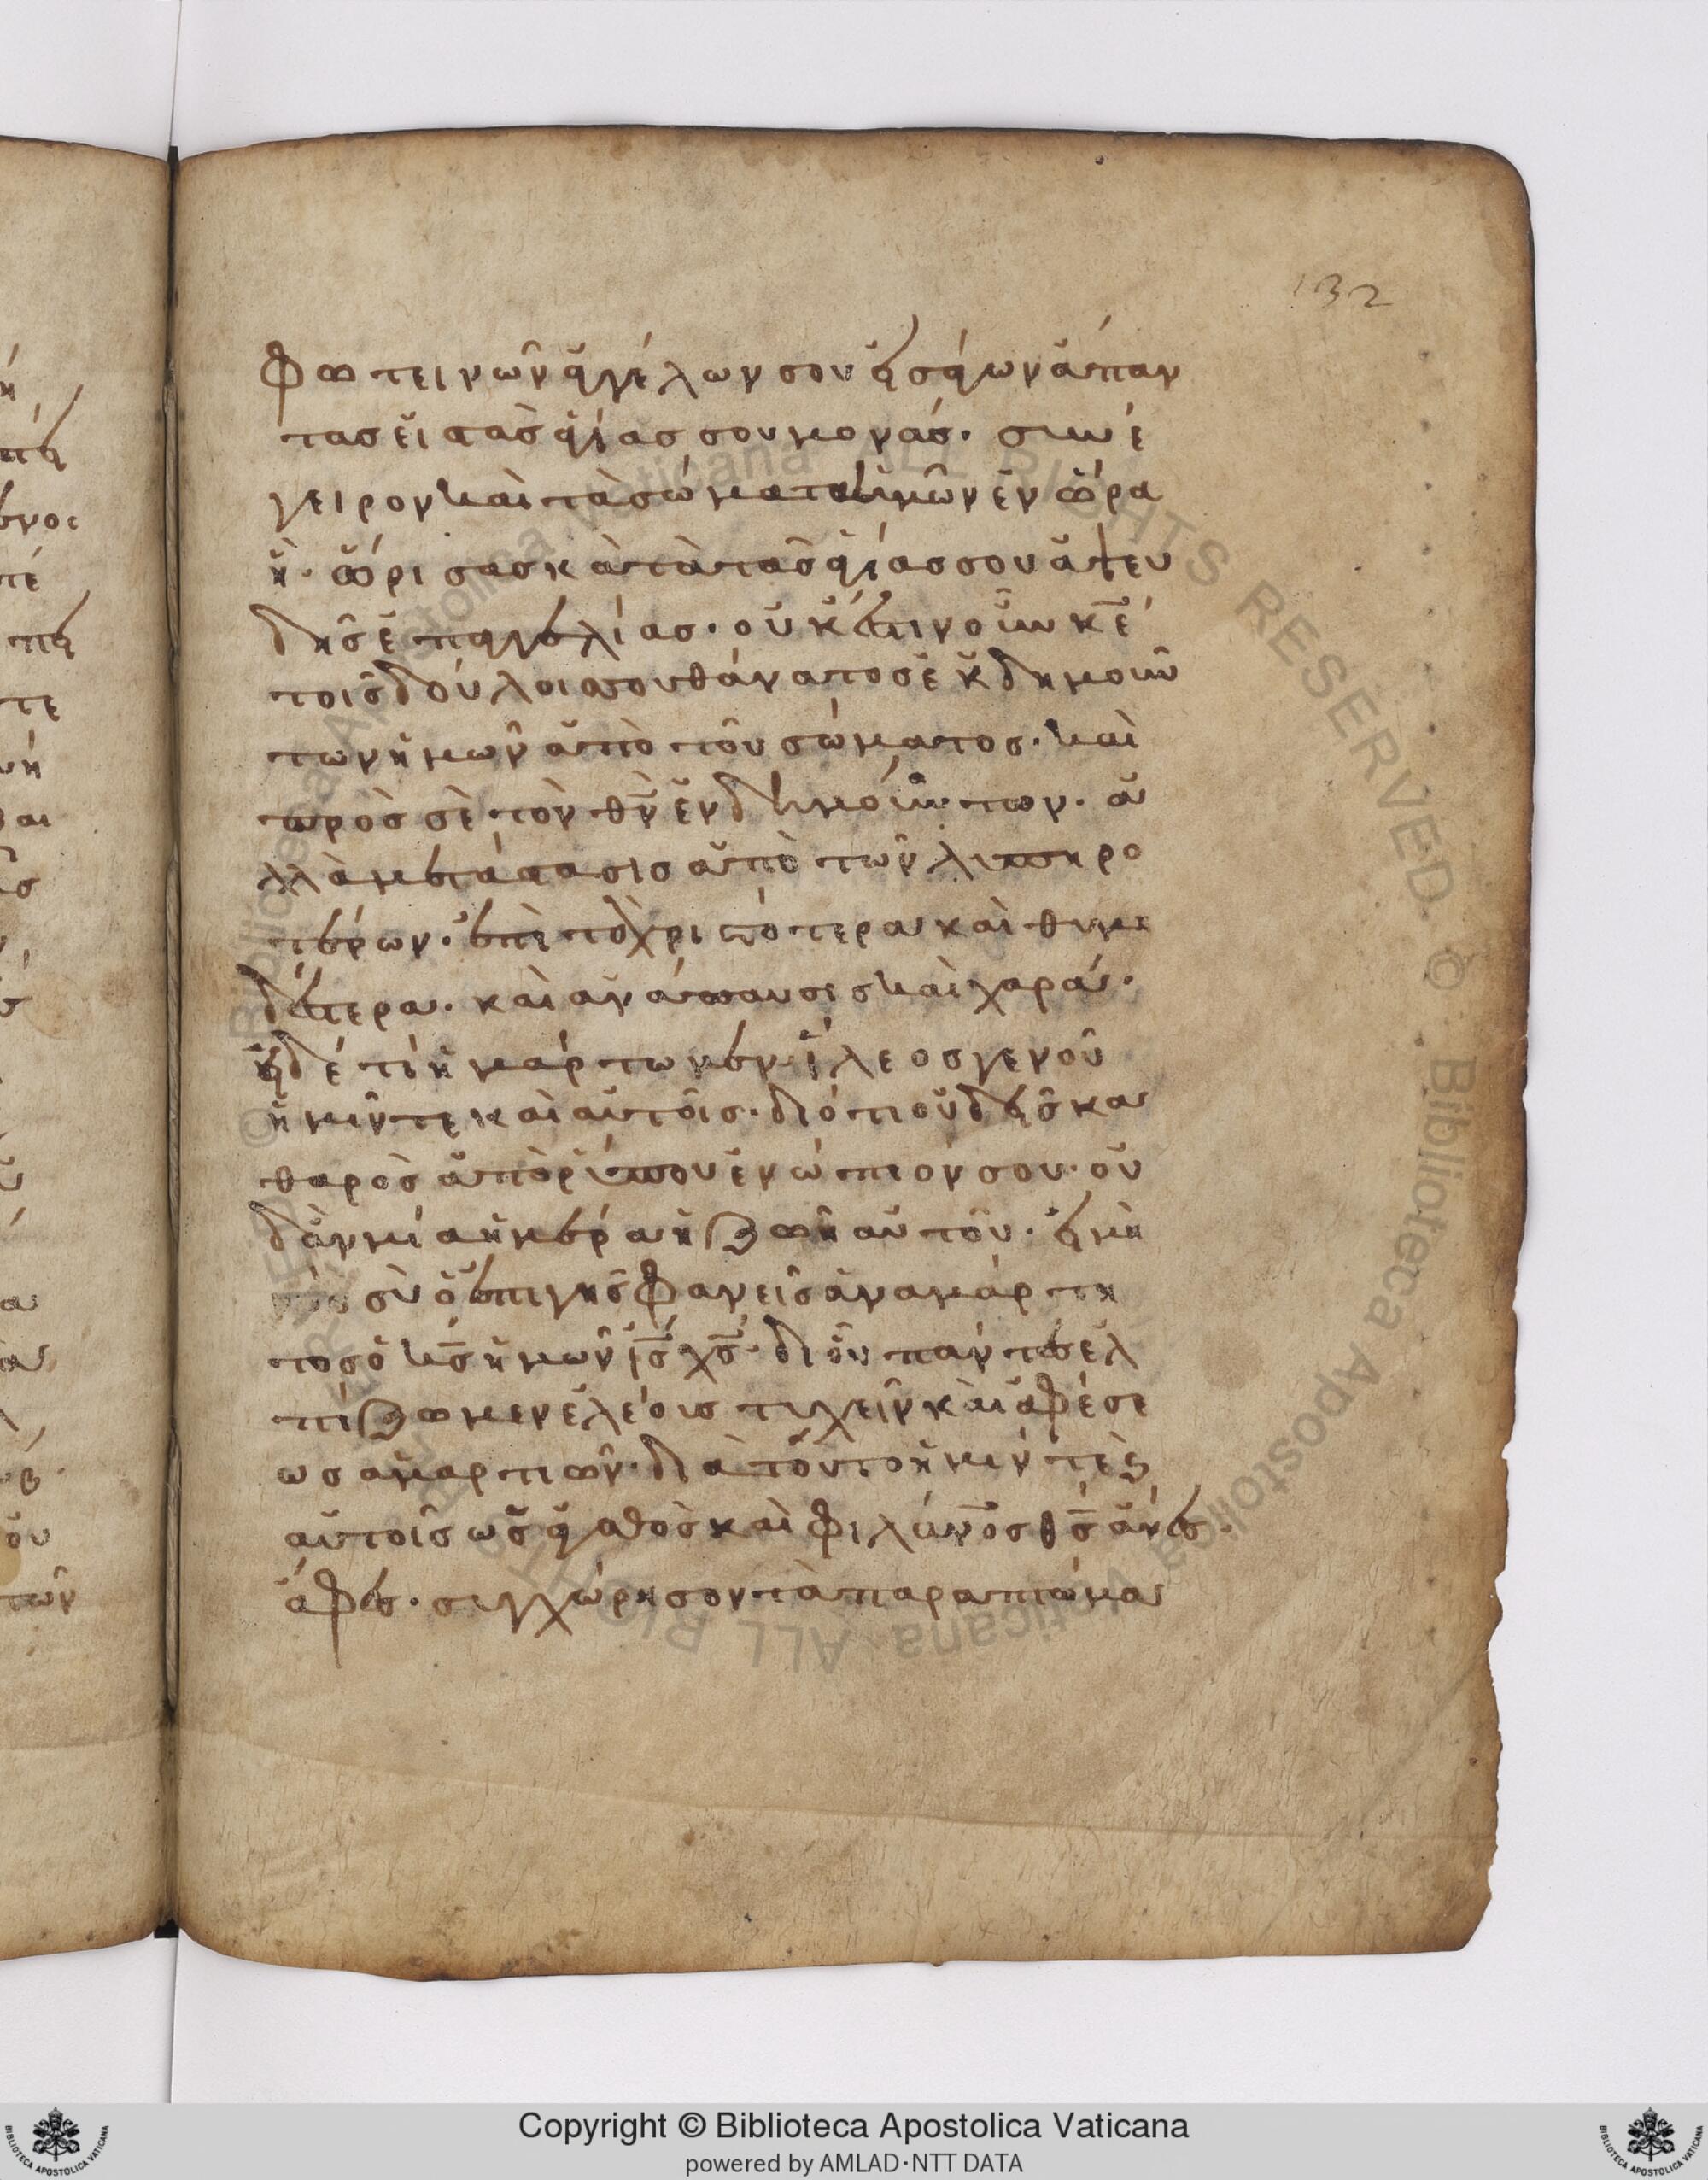 132
φωτεινῶν ἀγγέλων σου εἰσάγων ἅπαν
τας εἰς τὰς ἁγίας σου μονάς· συνέ
γειρον καὶ τὰ σώματα ἡμῶν ἐν ὥρα
ἧ· ὥρισας κατὰ τὰς ἁγίας σου ἀψευ
δῆς ἐπαγγελίας· οὐκ ἔστιν οὖν κ̅ε̅
τοῖς δούλοις σου θάνατος ἐκδημούν
των ἡμῶν ἀπὸ τοῦ σώματος· καὶ
πρὸς σὲ τὸν θ̅ν̅ ἐνδημούντων· ἀ
λλὰ μετάστασις ἀπὸ τῶν λυπηρο
τέρων· ἐπὶ τὸ χρηστότερα καὶ θυμη
δέστερα· καὶ ἀνάπαυσις καὶ χαρά·
εἰ δέ τι ἡμάρτωμεν· ἵλεος γενοῦ
ἡμῖν τε καὶ αὐτοῖς· διότι οὐδεὶς κα
θαρὸς ἀπὸ ῥύπου ἐνώπιόν σου· οὐ
δ᾽ ἂν μία ἡμέρα ἡ ζωὴ αὐτοῦ· εἰ μὴ
σὺ ὁ ἐπὶ γῆς φανεὶς ἀναμάρτη
τος ὁ κ̅ς̅ ἡμῶν ι̅ς̅ χ̅ς̅· δι᾽ οὗ πάντες ἐλ
πίζωμεν ἐλέους τυχεῖν καὶ ἀφέσε
ως ἁμαρτιῶν· διὰ τοῦτο ἡμῖν τὲ ϗ
αὐτοῖς ὡς ἀγαθὸς καὶ φιλάν̅ο̅ς θ̅ς̅ ἄνες·
ἄφες· συγχώρησον τὰ παραπτώμα
Copyright © Biblioteca Apostolica Vaticana
powered by AMLAD·NTT DATA